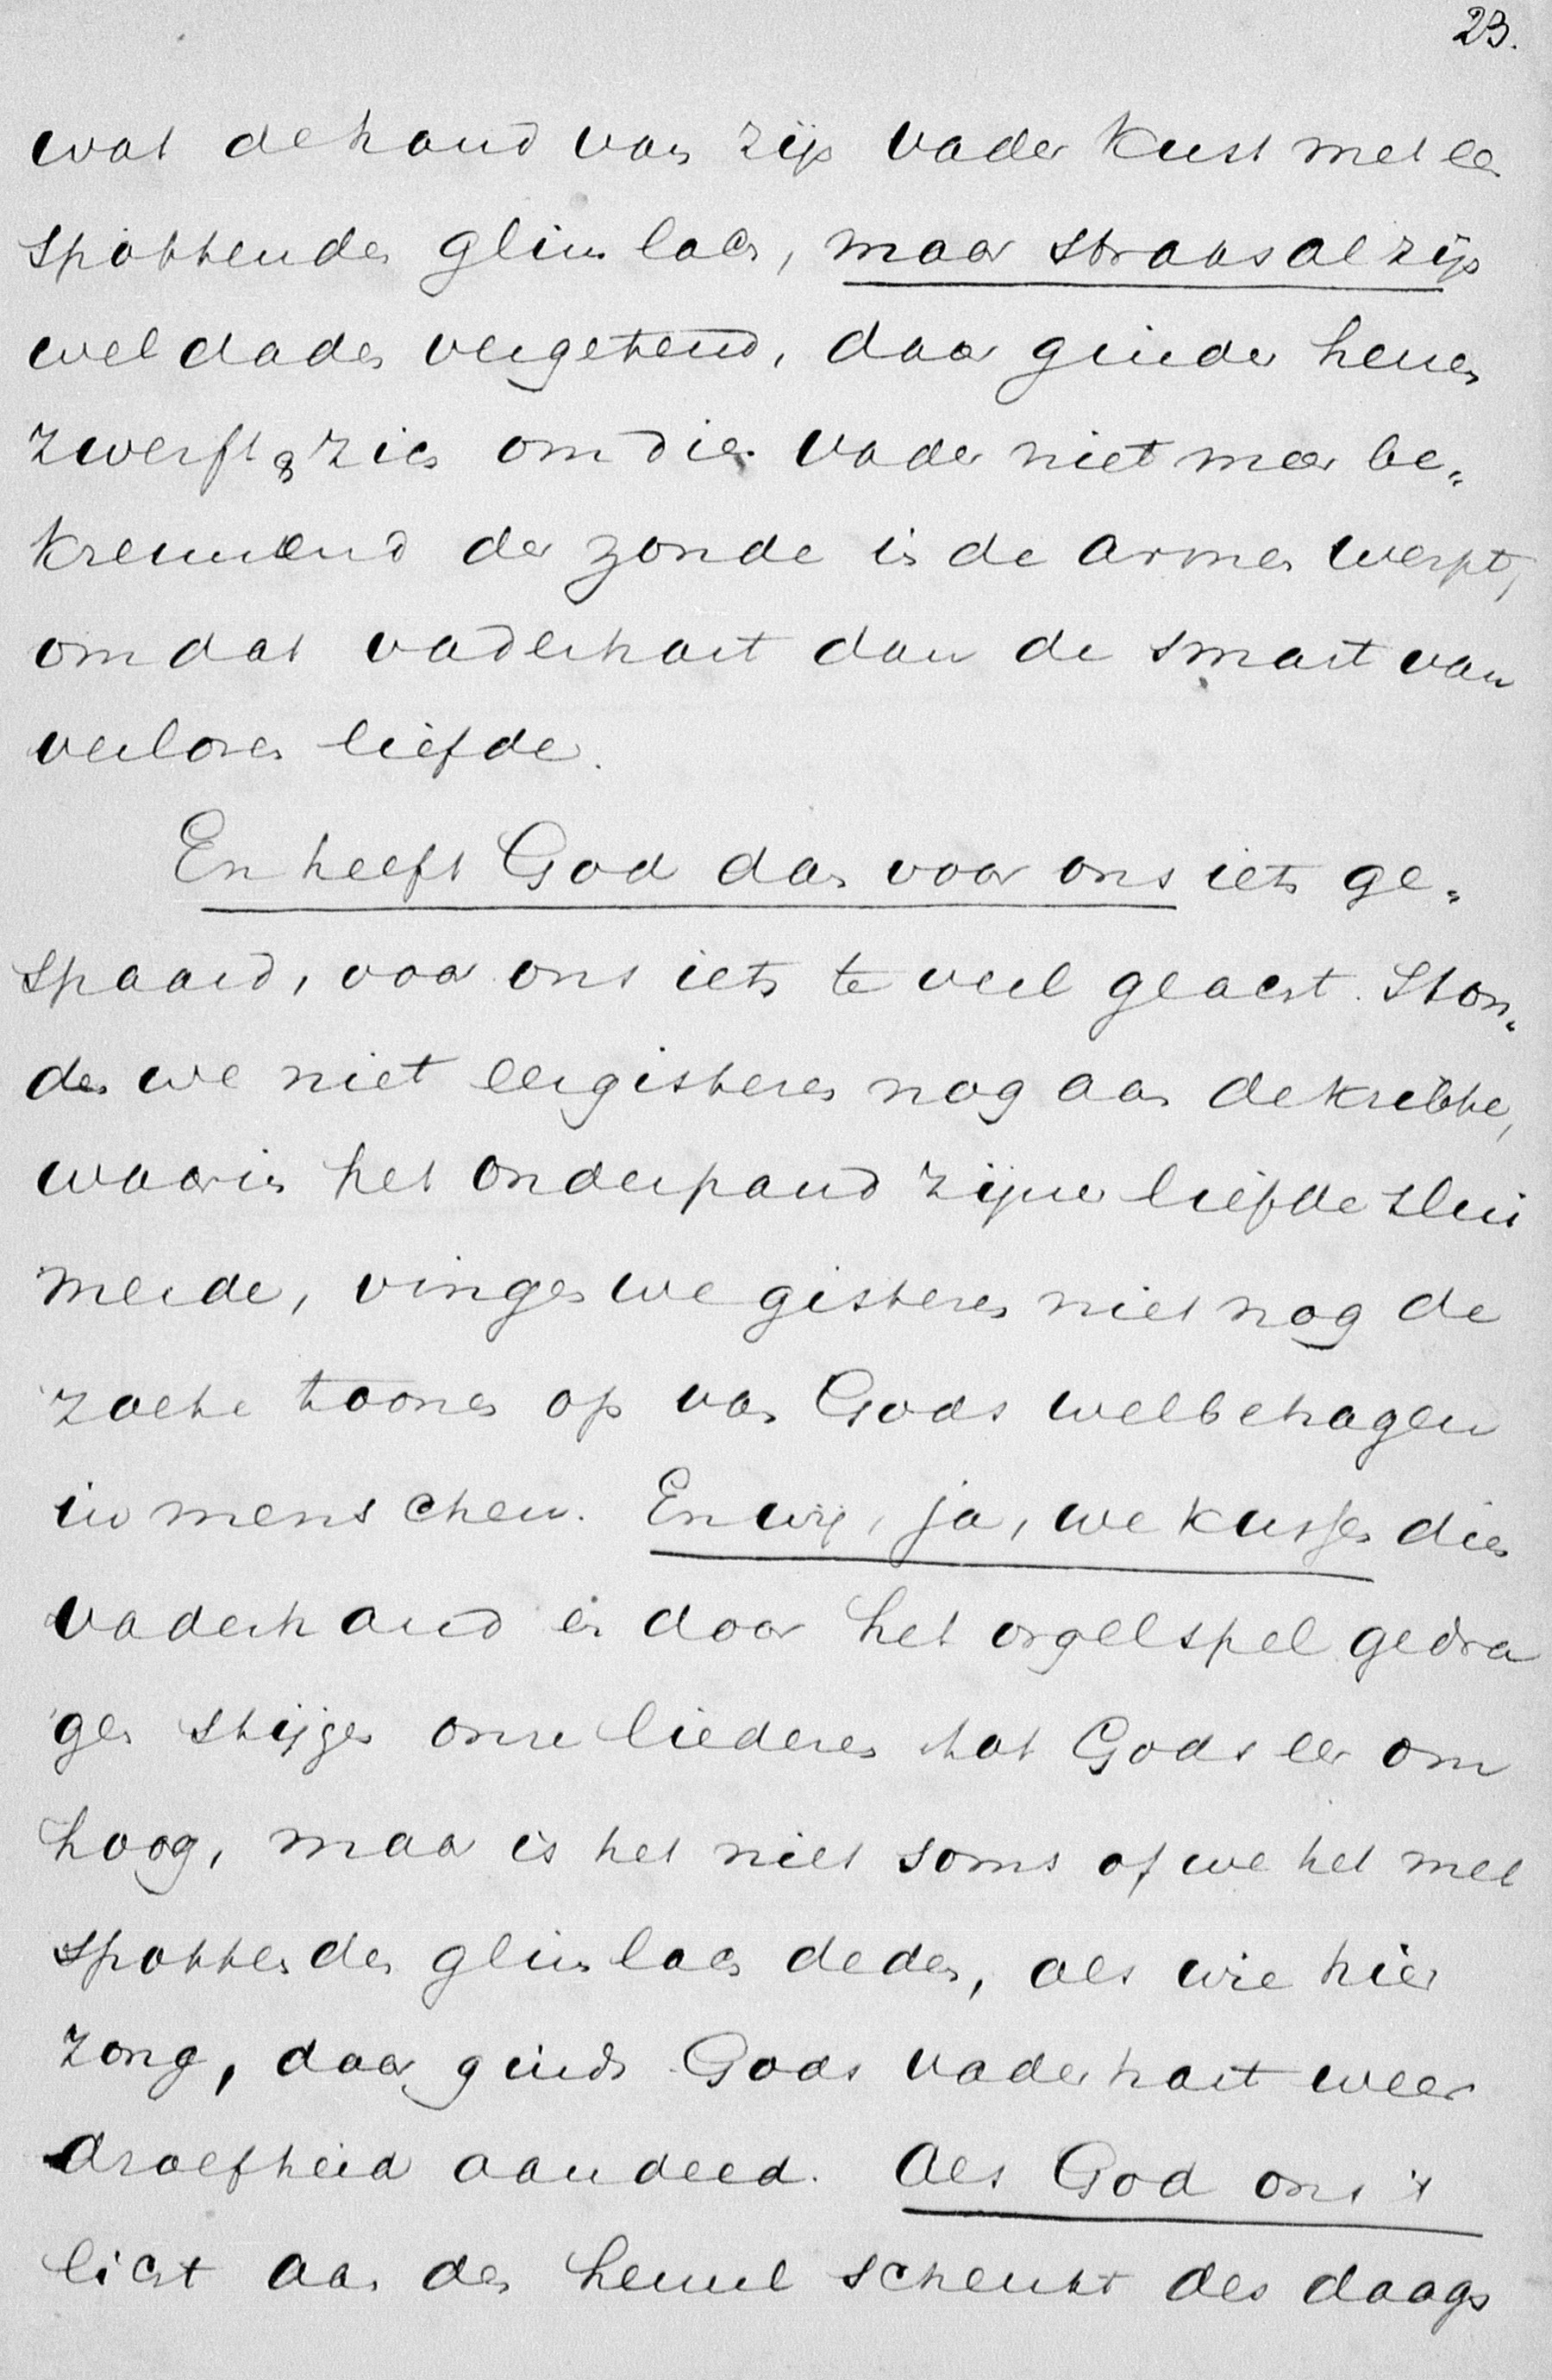 23.
wat de hand van zijn vader kust met een
spottenden glimlach, maar straks al zijn
weldaden vergetend, daar ginder henen
zwerft & zich om dien vader niet meer be„
kreunend der zonde in de armen werpt,
om dat vaderhart dan de smart van
verloren liefde.
En heeft God dan voor ons iets ge„
spaard, voor ons iets te veel geacht. Ston„
den we niet eergisteren nog aan de kribbe,
waarin het onderpand zijner liefde slui
merde, vingen we gisteren niet nog de
zoete toonen op van Gods welbehagen
in menschen. En wij, ja, we kussen dien
vaderhand en door het orgelspel gedra
gen stijgen onze liederen tot Gods eer om
hoog, maar is het niet soms of we het met
spottenden glimlach deden, als wie hier
zong, daar ginds Gods vaderhart weer
droefheid aandeed. Als God ons 't
licht aan den hemel schenkt des daags